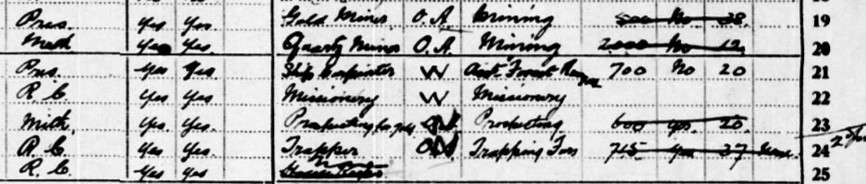 Pres. yes yes Gold Miner O.A. Mining 500 No 28 19
Meth yes Yes. Quartz Miner O.A. Mining 2000 No 12 20
Pres. yes Yes Ship Carpenter W Asst. Forest Ranger 700 No 20 21
R.C yes yes Missionary W Missionary 22
Meth. yes Yes. Prospecting for gold Prospecting 600 yes 20 23
R.C Yes Yes. Trapper Trapping Furs 715 yes 37 24
R.C. yes yes 25